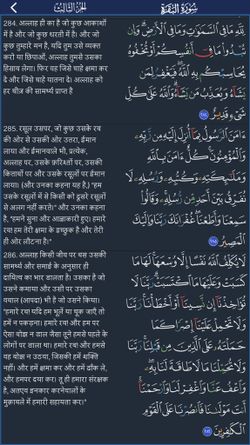 الجزء الثالث
سورة البقرة
284. अल्लाह ही का है जो कुछ आकाशों
में है और जो कुछ धरती में है। और जो
कुछ तुम्हारे मन है, यदि तुम उसे व्यक्त
करो या छिपाओं, अल्लाह तुमसे उसका
हिसाब लेगा। फिर वह जिसे चाहे क्षमा कर
दे और जिसे चाहे यातना दे। अल्लाह को
हर चीज़ की सामर्थ्य प्राप्त है
285. रसूल उसपर, जो कुछ उसके रब
की ओर से उसकी ओर उतरा, ईमान
लाया और ईमानवाले भी, प्रत्येक,
अल्लाह पर, उसके फ़रिश्तों पर, उसकी
किताबों पर और उसके रसूलों पर ईमान
लाया। (और उनका कहना यह है,) "हम
उसके रसूलों में से किसी को दूसरे रसूलों
से अलग नहीं करते।" और उनका कहना
है, "हमने सुना और आज्ञाकारी हुए। हमारे
रब! हम तेरी क्षमा के इच्छुक है और तेरी
ही ओर लौटना है।"
286. अल्लाह किसी जीव पर बस उसकी
सामर्थ्य और समाई के अनुसार ही
दायित्व का भार डालता है। उसका है जो
उसने कमाया और उसी पर उसका
वबाल (आपदा) भी है जो उसने किया।
"हमारे रब! यदि हम भूलें या चूक जाएँ तो
हमें न पकड़ना। हमारे रब! और हम पर
ऐसा बोझ न डाल जैसा तूने हमसे पहले के
लोगों पर डाला था। हमारे रब! और हमसे
वह बोझ न उठवा, जिसकी हमें शक्ति
नहीं। और हमें क्षमा कर और हमें ढाँक ले,
और हमपर दया कर। तू ही हमारा संरक्षक
है, अतएव इनकार करनेवालों के
मुक़ाबले में हमारी सहायता कर।"
لِّلَّهِ مَا فِي السَّمَٰوَٰتِ وَمَا فِي الْأَرْضِ ۗ وَإِن
تُبْدُوا مَا فِي أَنفُسِكُمْ أَوْ تُخْفُوهُ
يُحَاسِبْكُم بِهِ اللَّهُ ۖ فَيَغْفِرُ لِمَن
يَشَاءُ وَيُعَذِّبُ مَن يَشَاءُ ۗ وَاللَّهُ عَلَىٰ كُلِّ
شَيْءٍ قَدِيرٌ ٢٨٤
ءَامَنَ الرَّسُولُ بِمَا أُنزِلَ إِلَيْهِ مِن رَّبِّهِ
وَالْمُؤْمِنُونَ ۚ كُلٌّ ءَامَنَ بِاللَّهِ
وَمَلَٰئِكَتِهِ وَكُتُبِهِ وَرُسُلِهِ لَا
نُفَرِّقُ بَيْنَ أَحَدٍ مِّن رُّسُلِهِ ۚ وَقَالُوا
سَمِعْنَا وَأَطَعْنَا ۖ غُفْرَانَكَ رَبَّنَا وَإِلَيْكَ
الْمَصِيرُ ٢٨٥
لَا يُكَلِّفُ اللَّهُ نَفْسًا إِلَّا وُسْعَهَا ۚ لَهَا مَا
كَسَبَتْ وَعَلَيْهَا مَا اكْتَسَبَتْ ۗ رَبَّنَا لَا
تُؤَاخِذْنَا إِن نَّسِينَا أَوْ أَخْطَأْنَا ۚ رَبَّنَا
وَلَا تَحْمِلْ عَلَيْنَا إِصْرًا كَمَا
حَمَلْتَهُ عَلَى الَّذِينَ مِن قَبْلِنَا ۚ رَبَّنَا
وَلَا تُحَمِّلْنَا مَا لَا طَاقَةَ لَنَا بِهِ ۖ
وَاعْفُ عَنَّا وَاغْفِرْ لَنَا وَارْحَمْنَا ۚ
أَنتَ مَوْلَانَا فَانصُرْنَا عَلَى الْقَوْمِ
الْكَٰفِرِينَ ٢٨٦